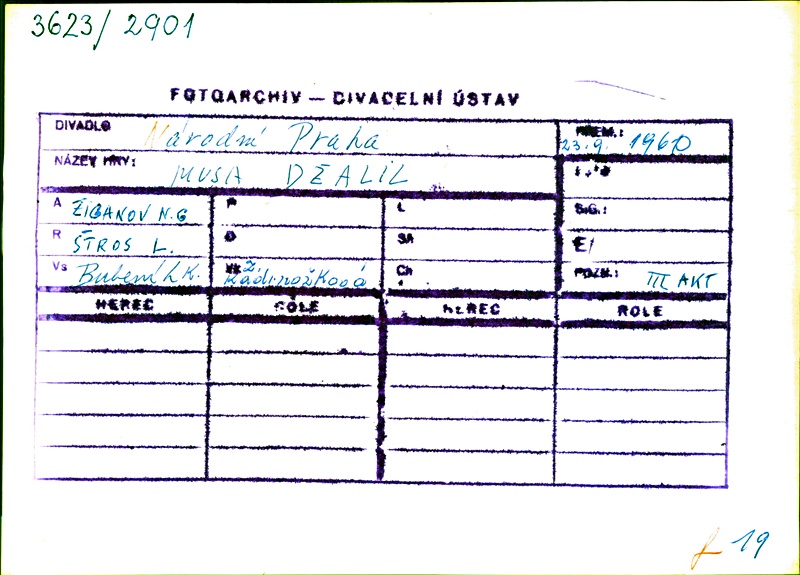 3623/2901
FOTOARCHIV — DIVADELNÍ ÚSTAV
DIVADLO Národní Praha
PREM.: 23.9. 1960
NÁZEV HRY: MUSA DŽALIL
A ŽIGANOV N.G P L SIG.:
R ŠTROS L. D SM E/
Vs Bubeník K. Ch POZN.: III AKT
HEREC RÓLE HEREC ROLE
19